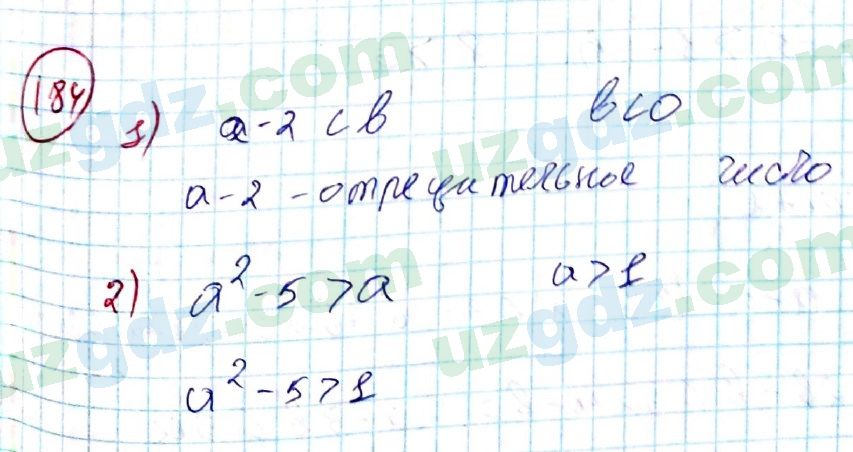 184
1) a-2 < b b<0
a-2 - отрецательное число
2) a²-5 > a a>1
a²-5>1
uzgdz.com
uzgdz.com
uzgdz.com
uzgdz.com